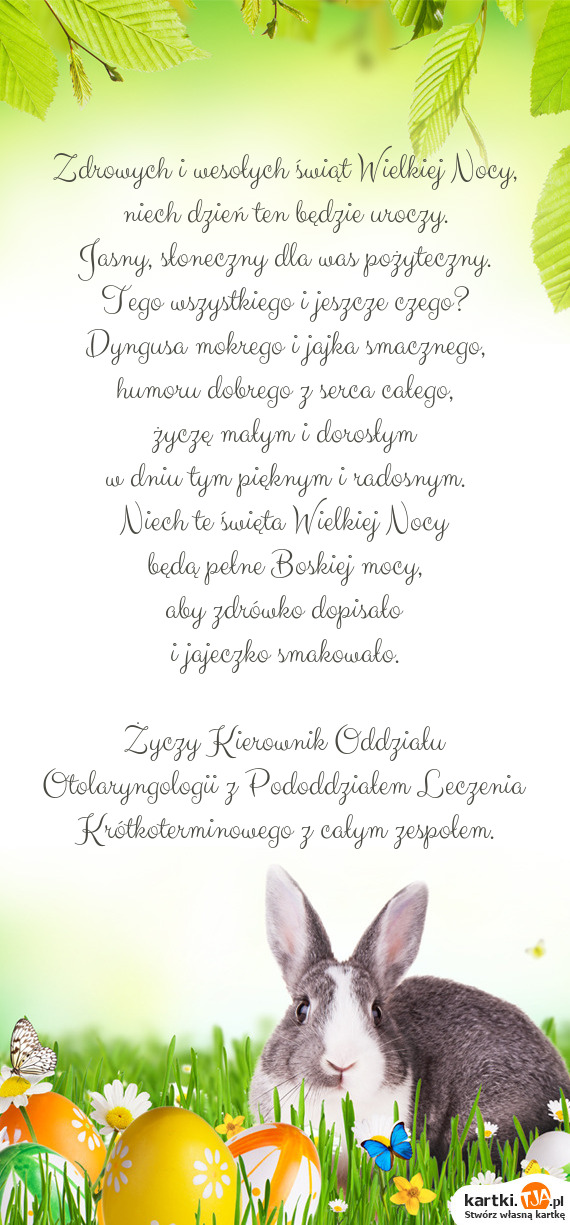 Zdrowych i wesołych świąt Wielkiej Nocy,
niech dzień ten będzie uroczy.
Jasny, słoneczny dla was pożyteczny.
Tego wszystkiego i jeszcze czego?
Dyngusa mokrego i jajka smacznego,
humoru dobrego z serca całego,
życzę małym i dorosłym
w dniu tym pięknym i radosnym.
Niech te święta Wielkiej Nocy
będą pełne Boskiej mocy,
aby zdrówko dopisało
i jajeczko smakowało.
Życzy Kierownik Oddziału
Otolaryngologii z Pododdziałem Leczenia
Krótkoterminowego z całym zespołem.
kartki.TJA.pl
Stwórz własną kartkę